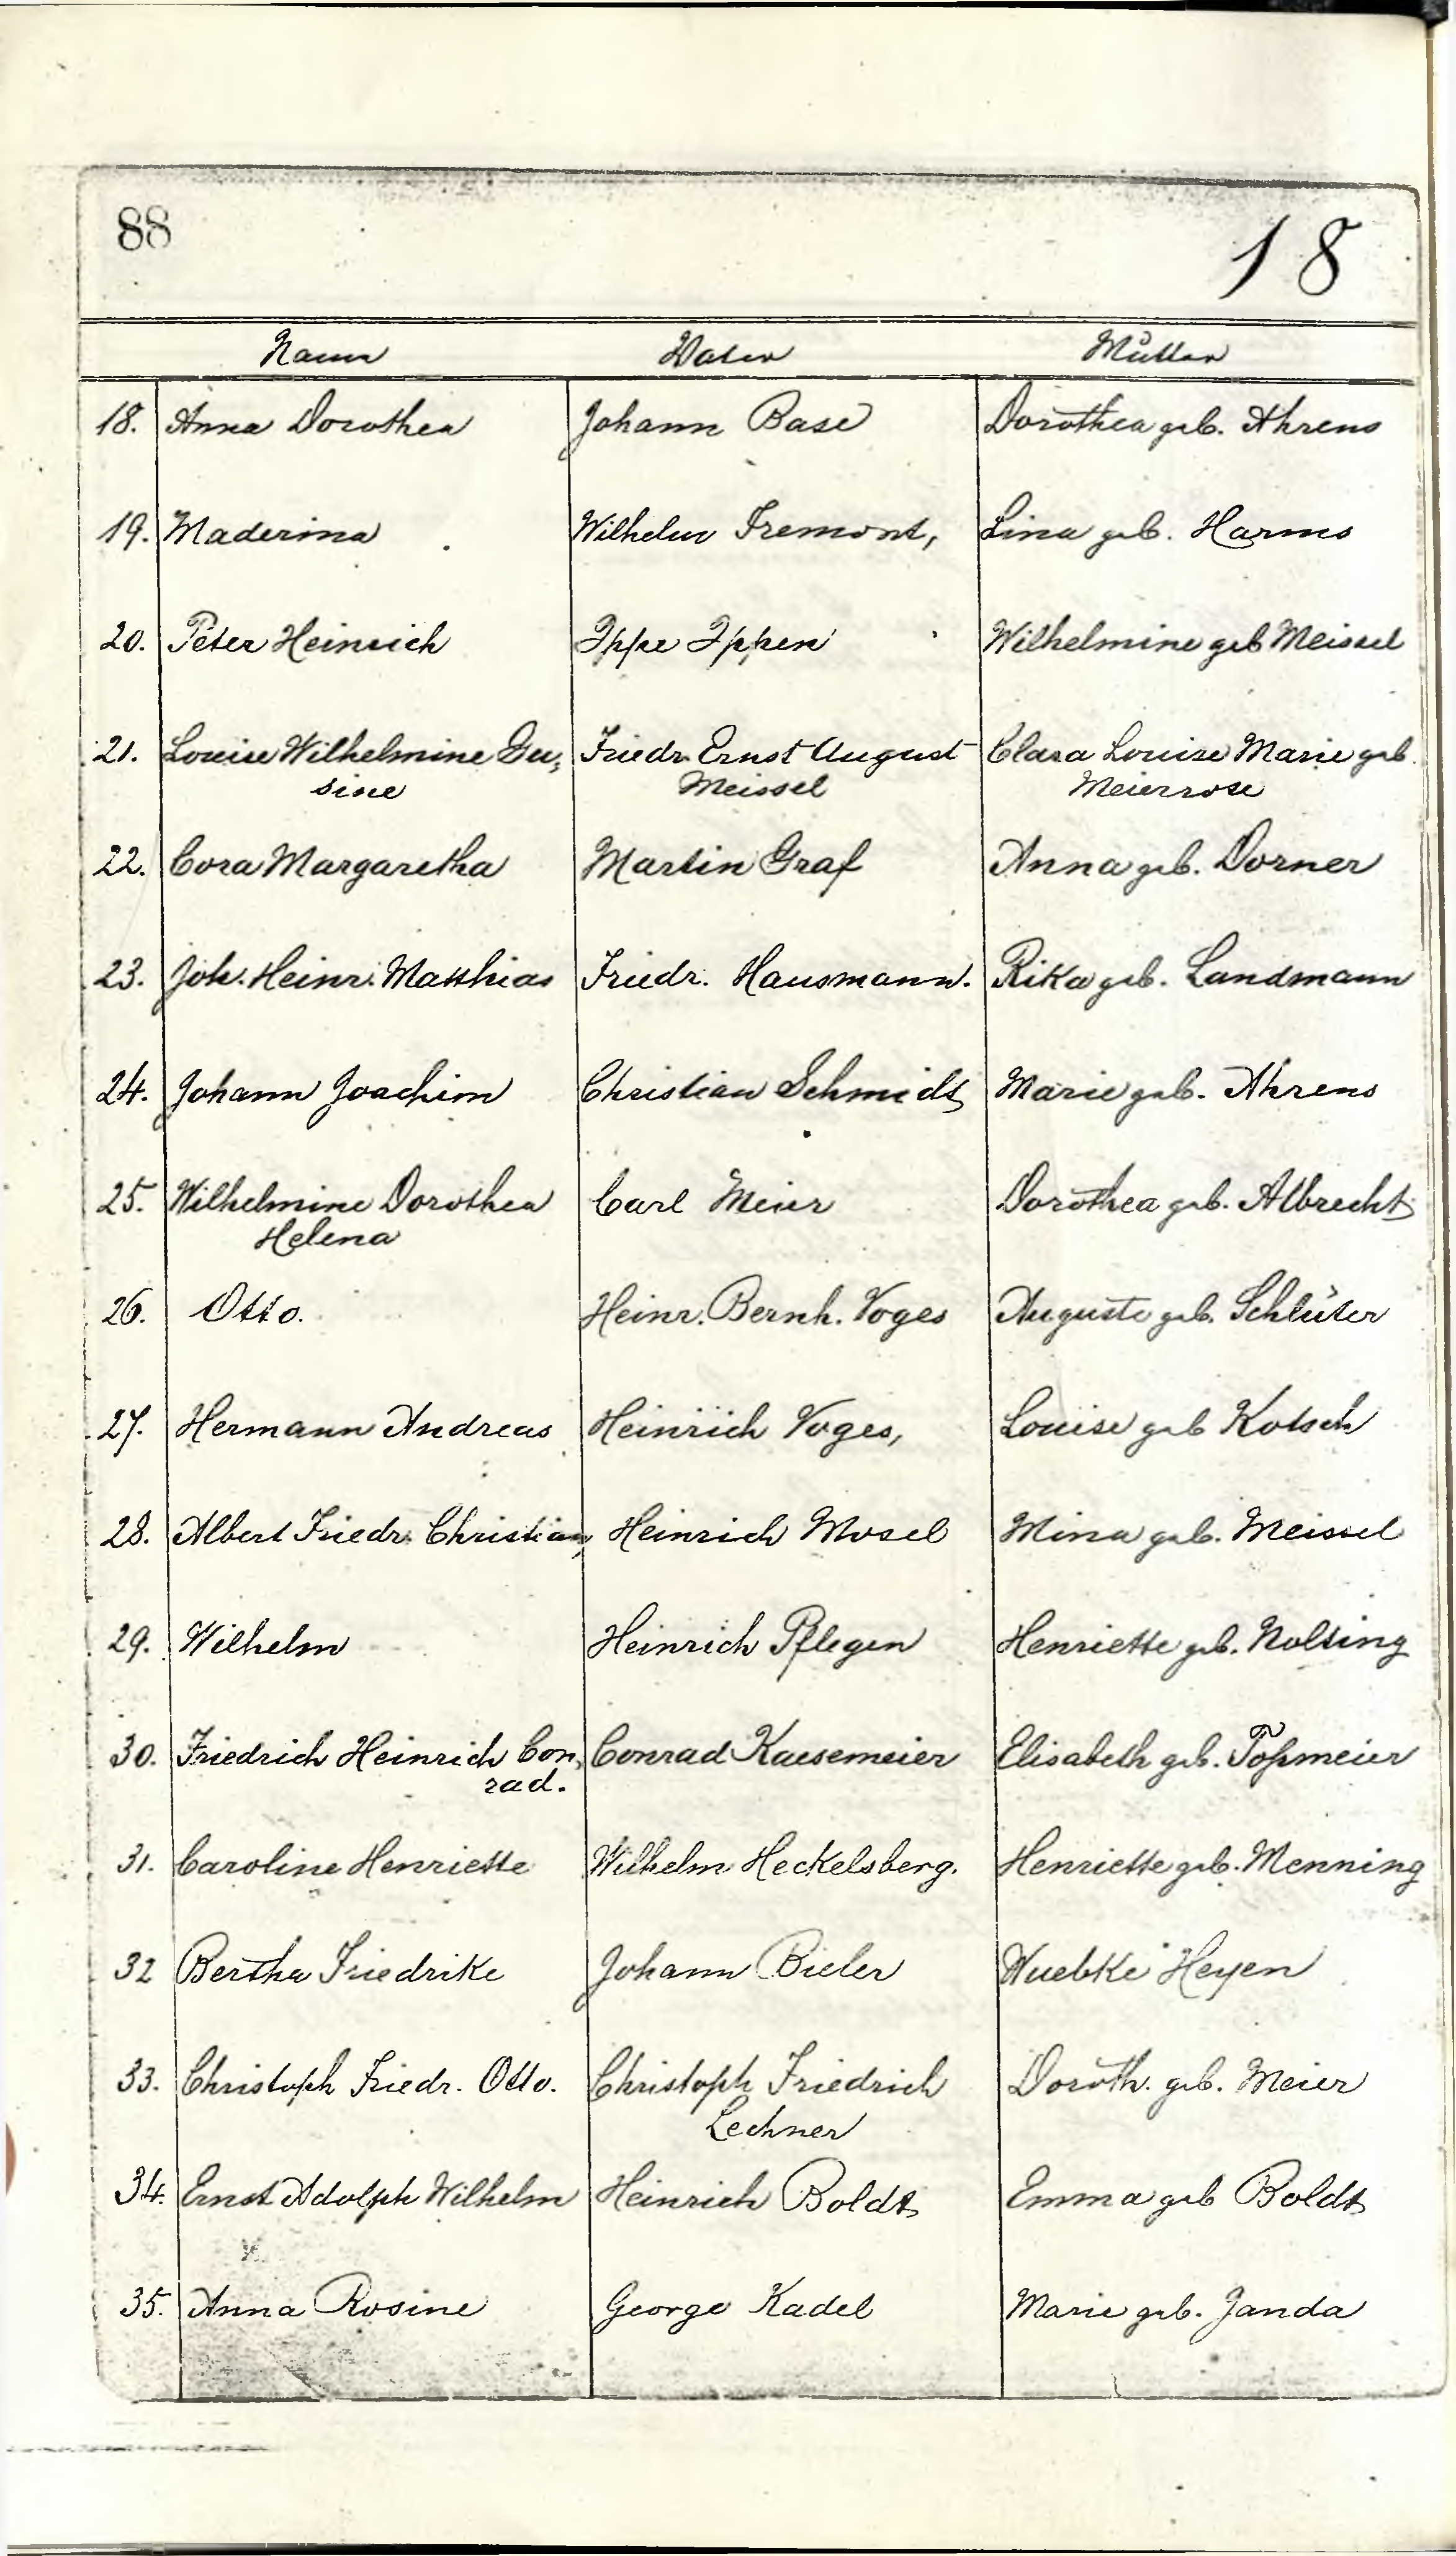 88
18
Name Vater Mutter
18. Anna Dorothea Johann Base Dorothea geb. Ahrens
19. Maderina Wilhelm Fremont, Lina geb. Harms
20. Peter Heinrich Ippe Ippen Wilhelmine geb Meissel
21. Louise Wilhelmine Gu, Friedr. Ernst August Clara Louise Marie geb.
sine Meissel Meierrose
22. Cora Margaretha Martin Graf Anna geb. Dorner
23. Joh. Heinr. Matthias Friedr. Hausmann. Rika geb. Landmann
24. Johann Joachim Christian Schmidt Marie geb. Ahrens
25. Wilhelmine Dorothea Carl Meier Dorothea geb. Albrecht
Helena
26. Otto. Heinr. Bernh. Voges Auguste geb. Schlüter
27. Hermann Andreas Heinrich Voges, Louise geb Kotsch
28. Albert Friedr. Christian, Heinrich Mosel Mina geb. Meissel
29. Wilhelm Heinrich Pflegen Henriette geb. Nolting
30. Friedrich Heinrich Con, Conrad Kaesemeier Elisabeth geb. Toßmeier
rad.
31. Caroline Henriette Wilhelm Heckelsberg. Henriette geb. Menning
32 Bertha Friedrike Johann Bieler Wuebke Heyen
33. Christoph Friedr. Otto. Christoph Friedrich Doroth. geb. Meier
Lechner
34. Ernst Adolph Wilhelm Heinrich Boldt Emma geb Boldt
35. Anna Rosine George Kadel Marie geb. Janda